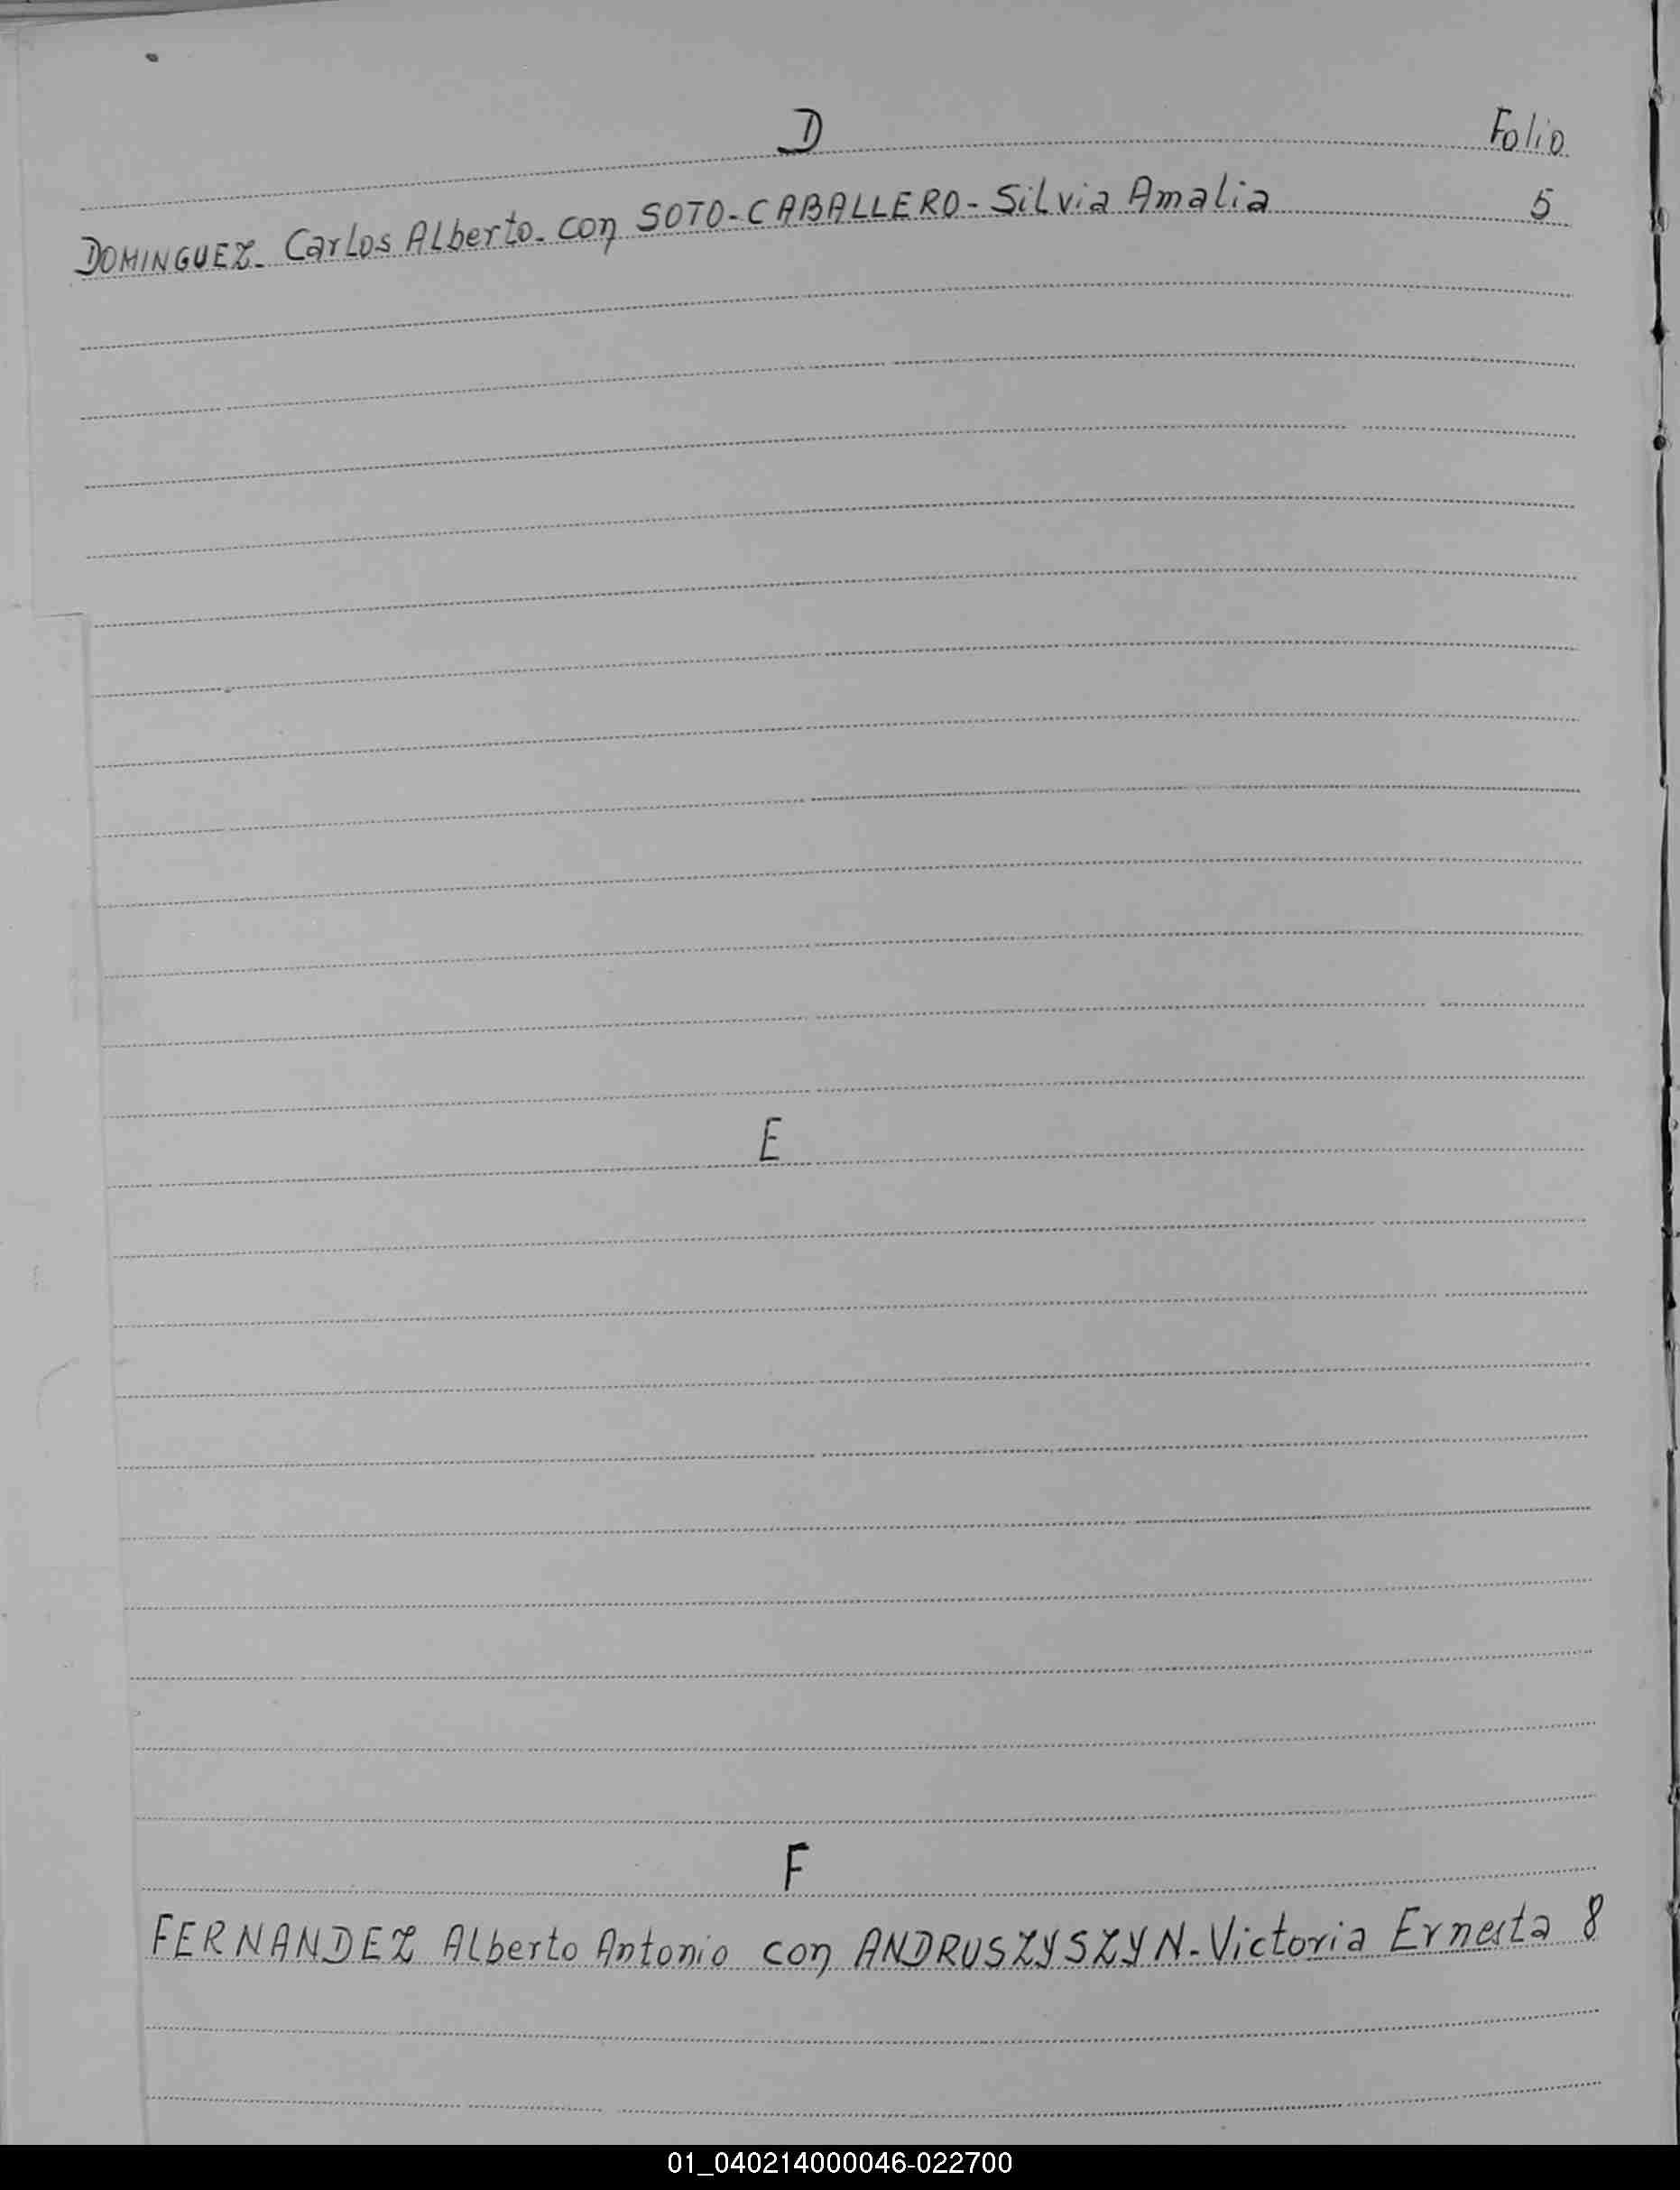 D Folio
DOMINGUEZ- Carlos Alberto- con SOTO-CABALLERO- Silvia Amalia 5
E
F
FERNANDEZ Alberto Antonio con ANDRUSZYSZYN- Victoria Ernesta 8
01_040214000046-022700